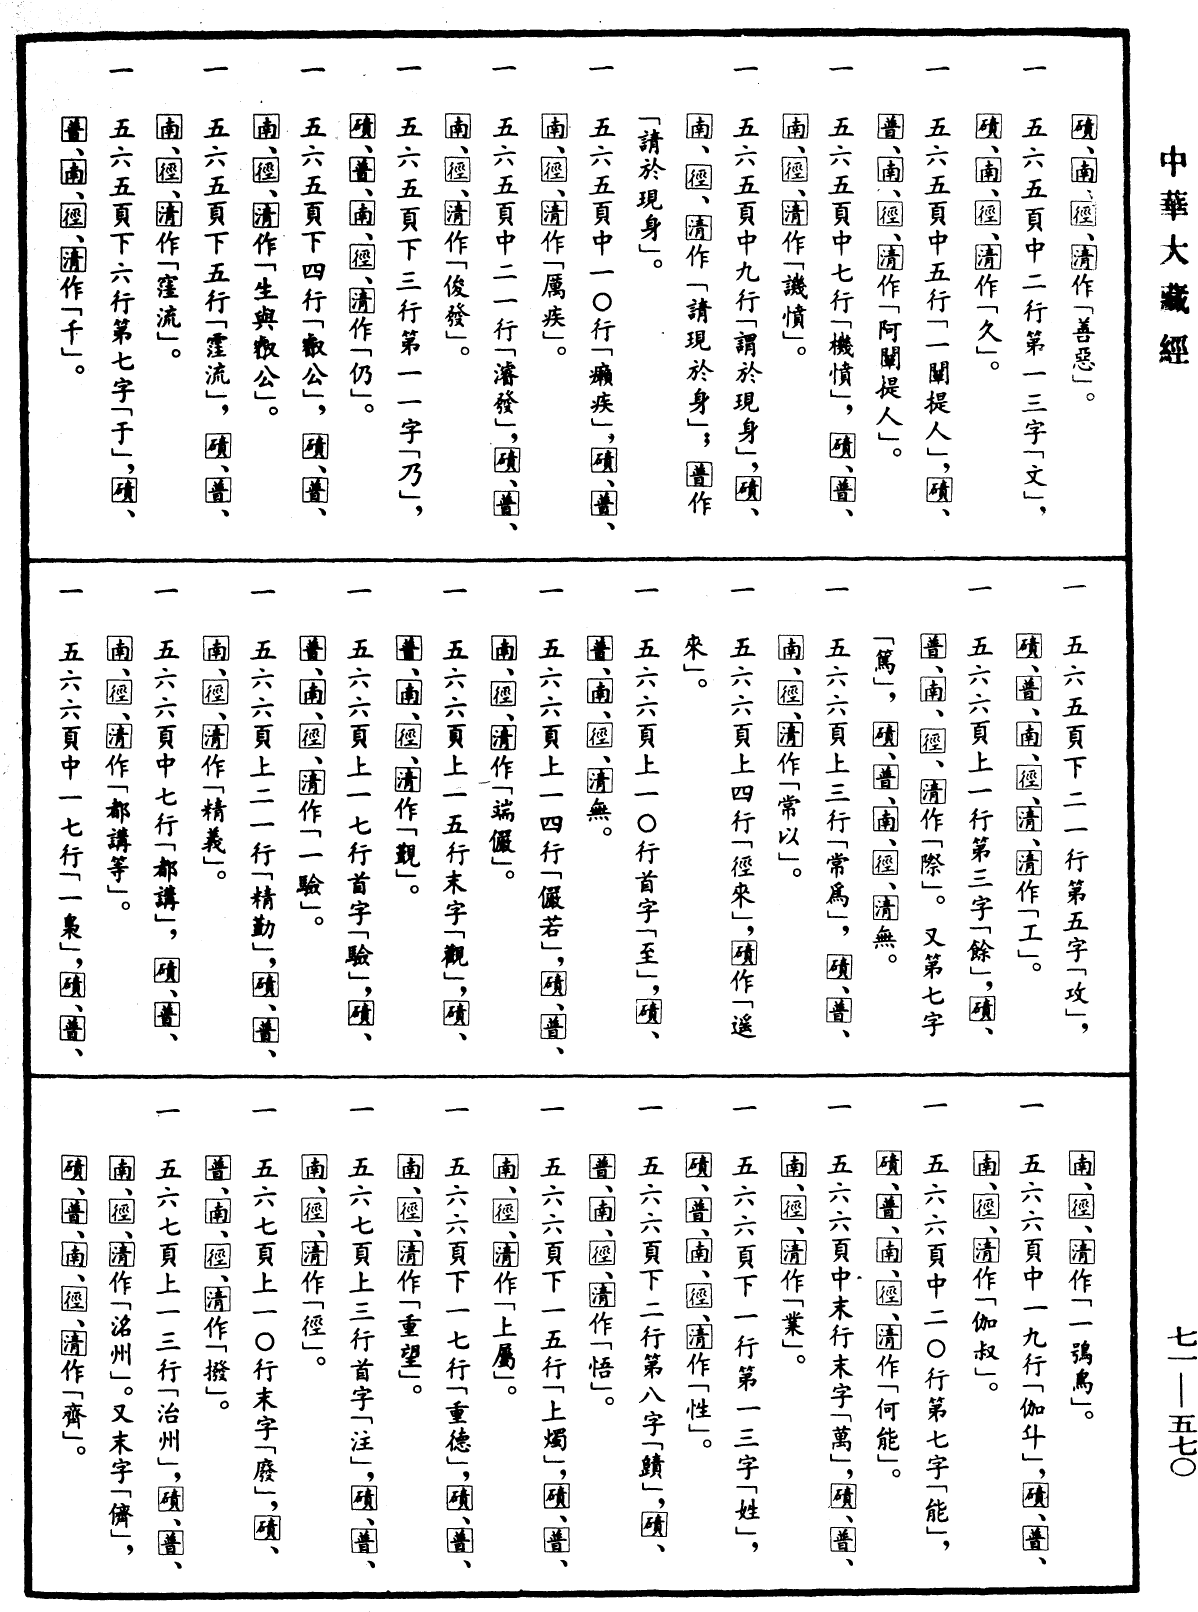 中華大藏經
磧、南、徑、清作「善惡」。
一 五六五頁中二行第一三字「文」，
磧、南、徑、清作「久」。
一 五六五頁中五行「一闡提人」，磧、
普、南、徑、清作「阿闡提人」。
一 五六五頁中七行「機憤」，磧、普、
南、徑、清作「譏憤」。
一 五六五頁中九行「謂於現身」，磧、
南、徑、清作「請現於身」；普作
「請於現身」。
一 五六五頁中一〇行「癩疾」，磧、普、
南、徑、清作「厲疾」。
一 五六五頁中二一行「濬發」，磧、普、
南、徑、清作「俊發」。
一 五六五頁下三行第一一字「乃」，
磧、普、南、徑、清作「仍」。
一 五六五頁下四行「㪟公」，磧、普、
南、徑、清作「生與㪟公」。
一 五六五頁下五行「霔流」，磧、普、
南、徑、清作「窪流」。
一 五六五頁下六行第七字「于」，磧、
普、南、徑、清作「千」。
一 五六五頁下二一行第五字「攻」，
磧、普、南、徑、清、清作「工」。
一 五六六頁上一行第三字「餘」，磧、
普、南、徑、清作「際」。又第七字
「篤」，磧、普、南、徑、清無。
一 五六六頁上三行「常爲」，磧、普、
南、徑、清作「常以」。
一 五六六頁上四行「徑來」，磧作「遥
來」。
一 五六六頁上一〇行首字「至」，磧、
普、南、徑、清無。
一 五六六頁上一四行「儼若」，磧、普、
南、徑、清作「端儼」。
一 五六六頁上一五行末字「觀」，磧、
普、南、徑、清作「觀」。
一 五六六頁上一七行首字「驗」，磧、
普、南、徑、清作「一驗」。
一 五六六頁上二一行「精勤」，磧、普、
南、徑、清作「精義」。
一 五六六頁中七行「都講」，磧、普、
南、徑、清作「都講等」。
一 五六六頁中一七行「一梟」，磧、普、
南、徑、清作「一鴞鳥」。
一 五六六頁中一九行「伽斗」，磧、普、
南、徑、清作「伽叔」。
一 五六六頁中二〇行第七字「能」，
磧、普、南、徑、清作「何能」。
一 五六六頁中末行末字「萬」，磧、普、
南、徑、清作「業」。
一 五六六頁下一行第一三字「姓」，
磧、普、南、徑、清作「性」。
一 五六六頁下二行第八字「賾」，磧、
普、南、徑、清作「悟」。
一 五六六頁下一五行「上燭」，磧、普、
南、徑、清作「上屬」。
一 五六六頁下一七行「重德」，磧、普、
南、徑、清作「重望」。
一 五六七頁上三行首字「注」，磧、普、
南、徑、清作「徑」。
一 五六七頁上一〇行末字「廢」，磧、
普、南、徑、清作「撥」。
一 五六七頁上一三行「治州」，磧、普、
南、徑、清作「洺州」。又末字「儕」，
磧、普、南、徑、清作「齊」。
七一——五七〇